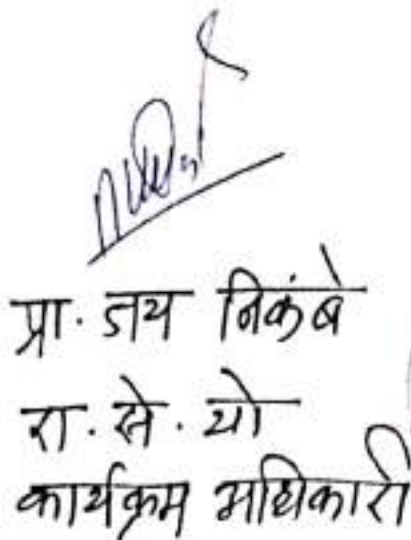 प्रा. जय निकंबे
रा. से. यो
कार्यक्रम अधिकारी